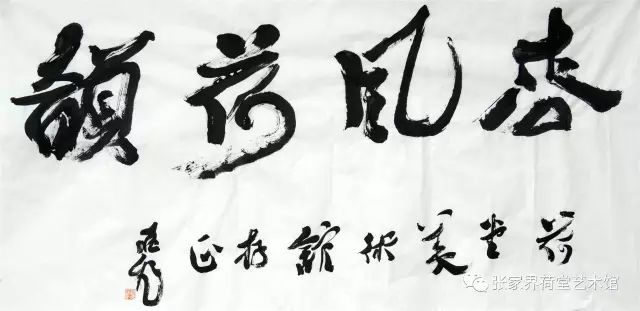 香風荷韻
荷堂美術館存正
张家界荷堂艺术馆